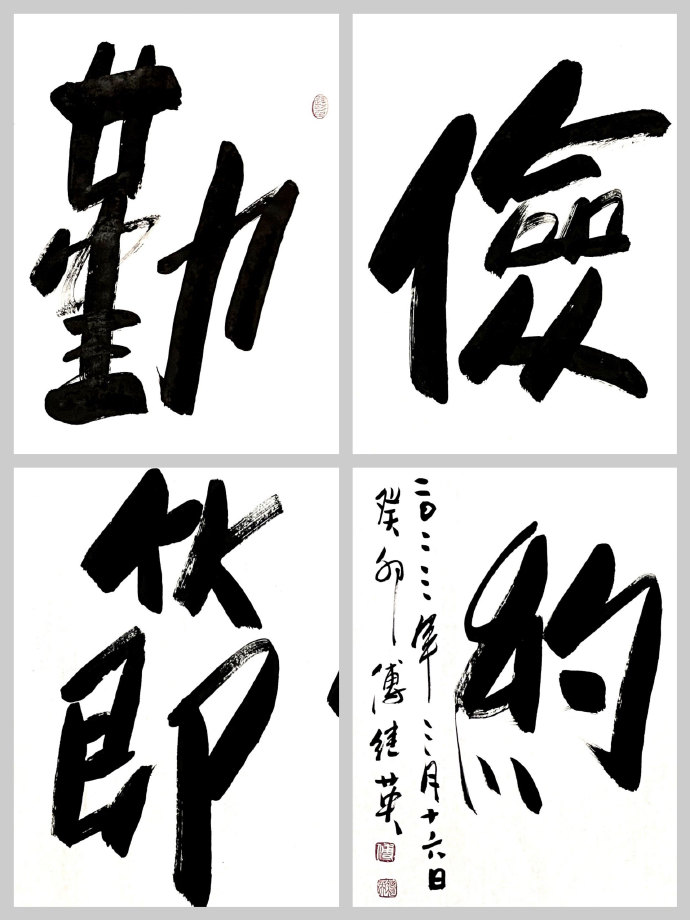 勤
儉
節
約
二〇二三年三月十六日
癸卯 傅继英